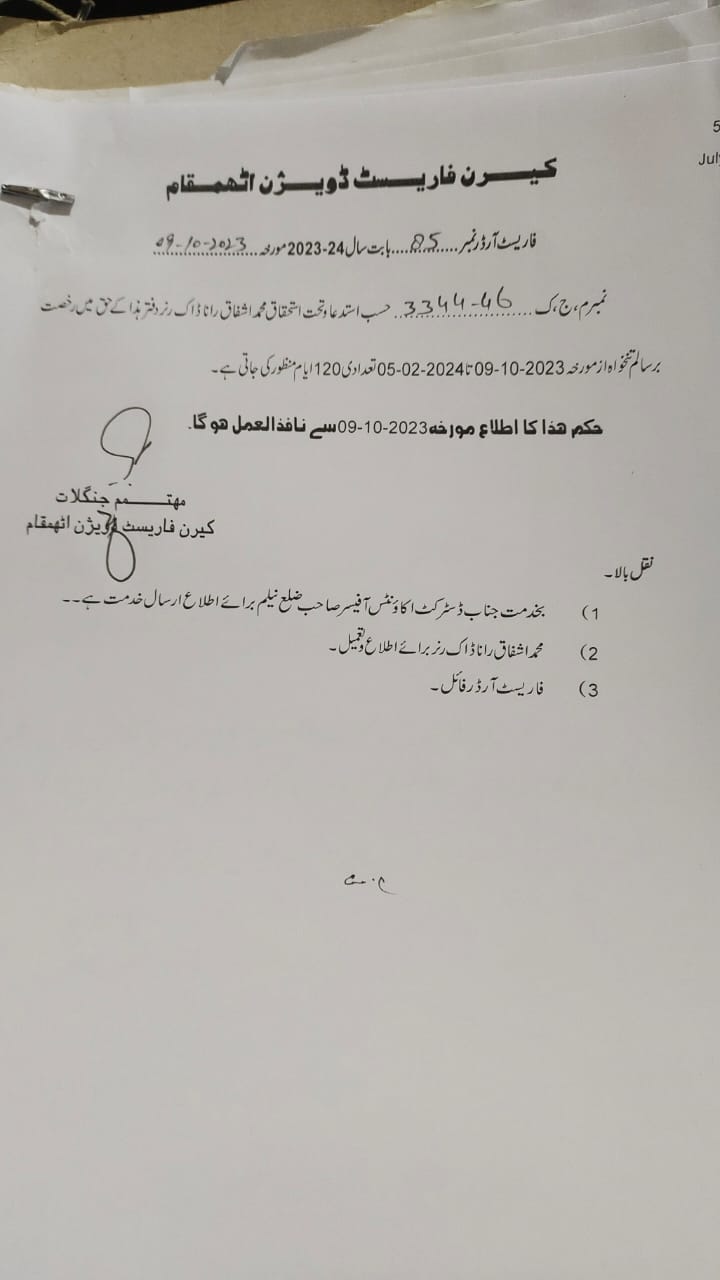 5
July
کیرن فاریسٹ ڈویژن اٹھمقام
فاریسٹ آرڈر نمبر.....85....بابت سال 24-2023 مورخہ...09-10-2023
نمبر م، ج، ک......3344-46...حسب استدعا و تحت استحقاق محمد اشفاق رانا ڈاک رنر دفتر ہذا کے حق میں رخصت
برسالم تنخواہ از مورخہ 09-10-2023 تا 05-02-2024 تعدادی 120 ایام منظور کی جاتی ہے۔
حکم ھذا کا اطلاع مورخہ 09-10-2023 سے نافذالعمل ھو گا۔
مھتمم جنگلات
کیرن فاریسٹ ڈویژن اٹھمقام
نقل بالا۔
1) بخدمت جناب ڈسٹرکٹ اکاؤنٹس آفیسر صاحب ضلع نیلم برائے اطلاع ارسال خدمت ہے۔۔
2) محمد اشفاق رانا ڈاک رنر برائے اطلاع و تعمیل۔
3) فاریسٹ آرڈر فائل۔